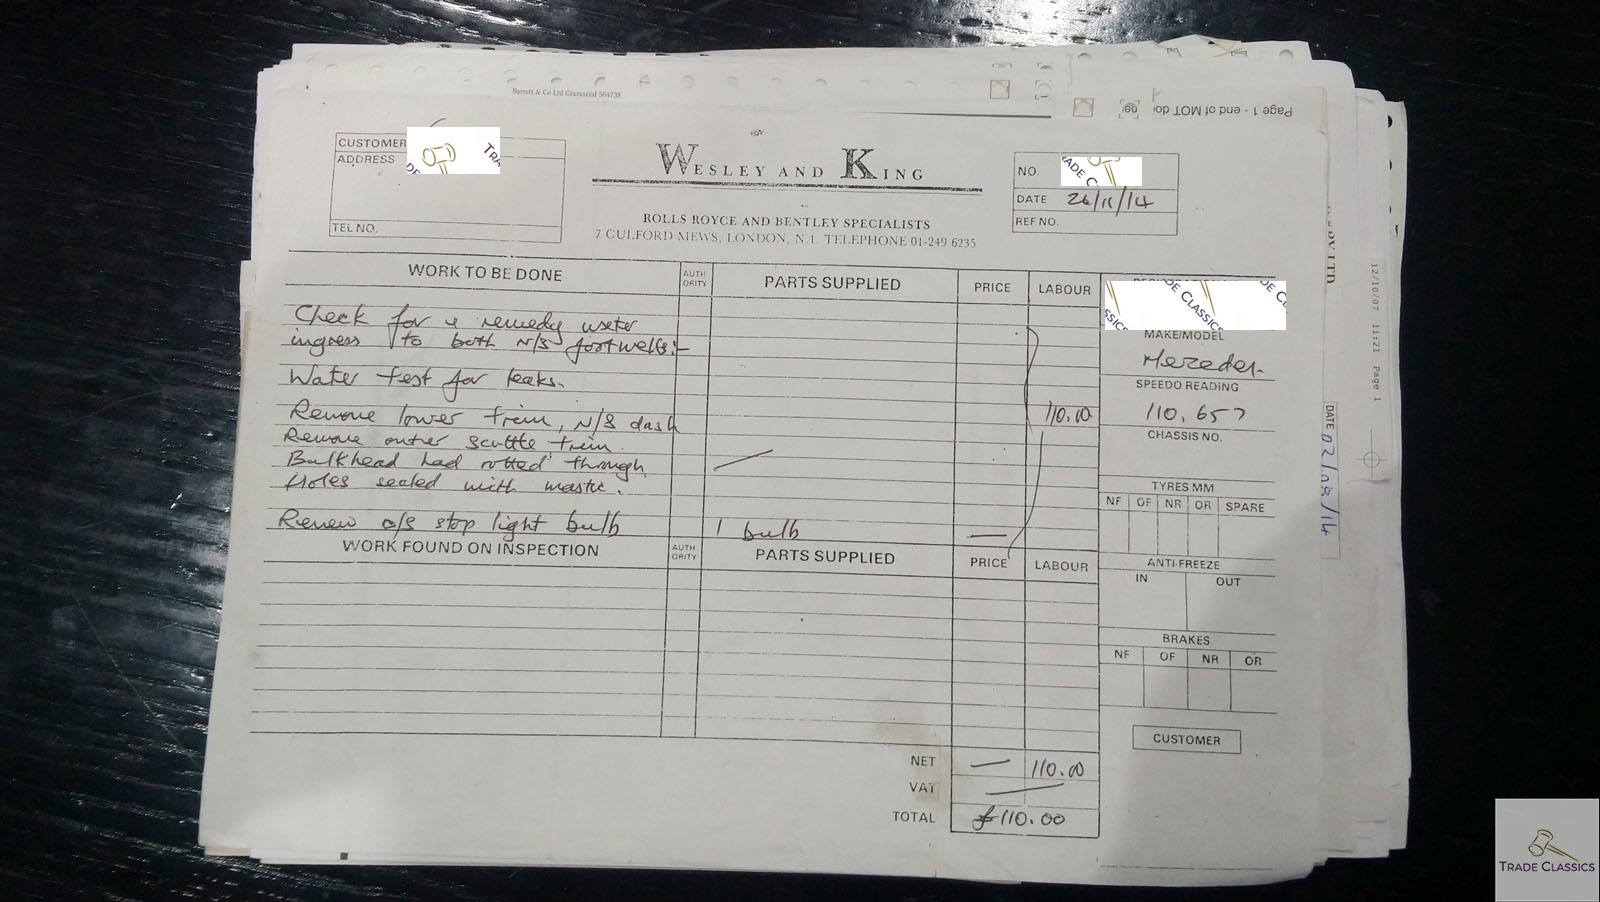 Barrett & Co Ltd Gravesend 564738
Page 1 - end of MOT do
CUSTOMER
ADDRESS
TEL NO.
WESLEY AND KING
ROLLS ROYCE AND BENTLEY SPECIALISTS
7 CULFORD MEWS, LONDON, N.1. TELEPHONE 01-249 6235
NO.
DATE 26/11/14
REF NO.
WORK TO BE DONE
AUTH ORITY
PARTS SUPPLIED
PRICE
LABOUR
Check for & remedy water
ingress to both N/S footwells:-
Water test for leaks.
Remove lower trim, N/S dash
Remove outer scuttle trim
Bulkhead had rotted through
Holes sealed with mastic.
Renew o/s stop light bulb
1 bulb
110.00
MAKE/MODEL
Mercedes.
SPEEDO READING
110.657
CHASSIS NO.
TYRES MM
NF OF NR OR SPARE
ANTI-FREEZE
IN OUT
BRAKES
NF OF NR OR
CUSTOMER
WORK FOUND ON INSPECTION
AUTH ORITY
PARTS SUPPLIED
PRICE
LABOUR
NET — 110.00
VAT
TOTAL £110.00
12/10/07 11:21 Page 1
DATE
TRADE CLASSICS